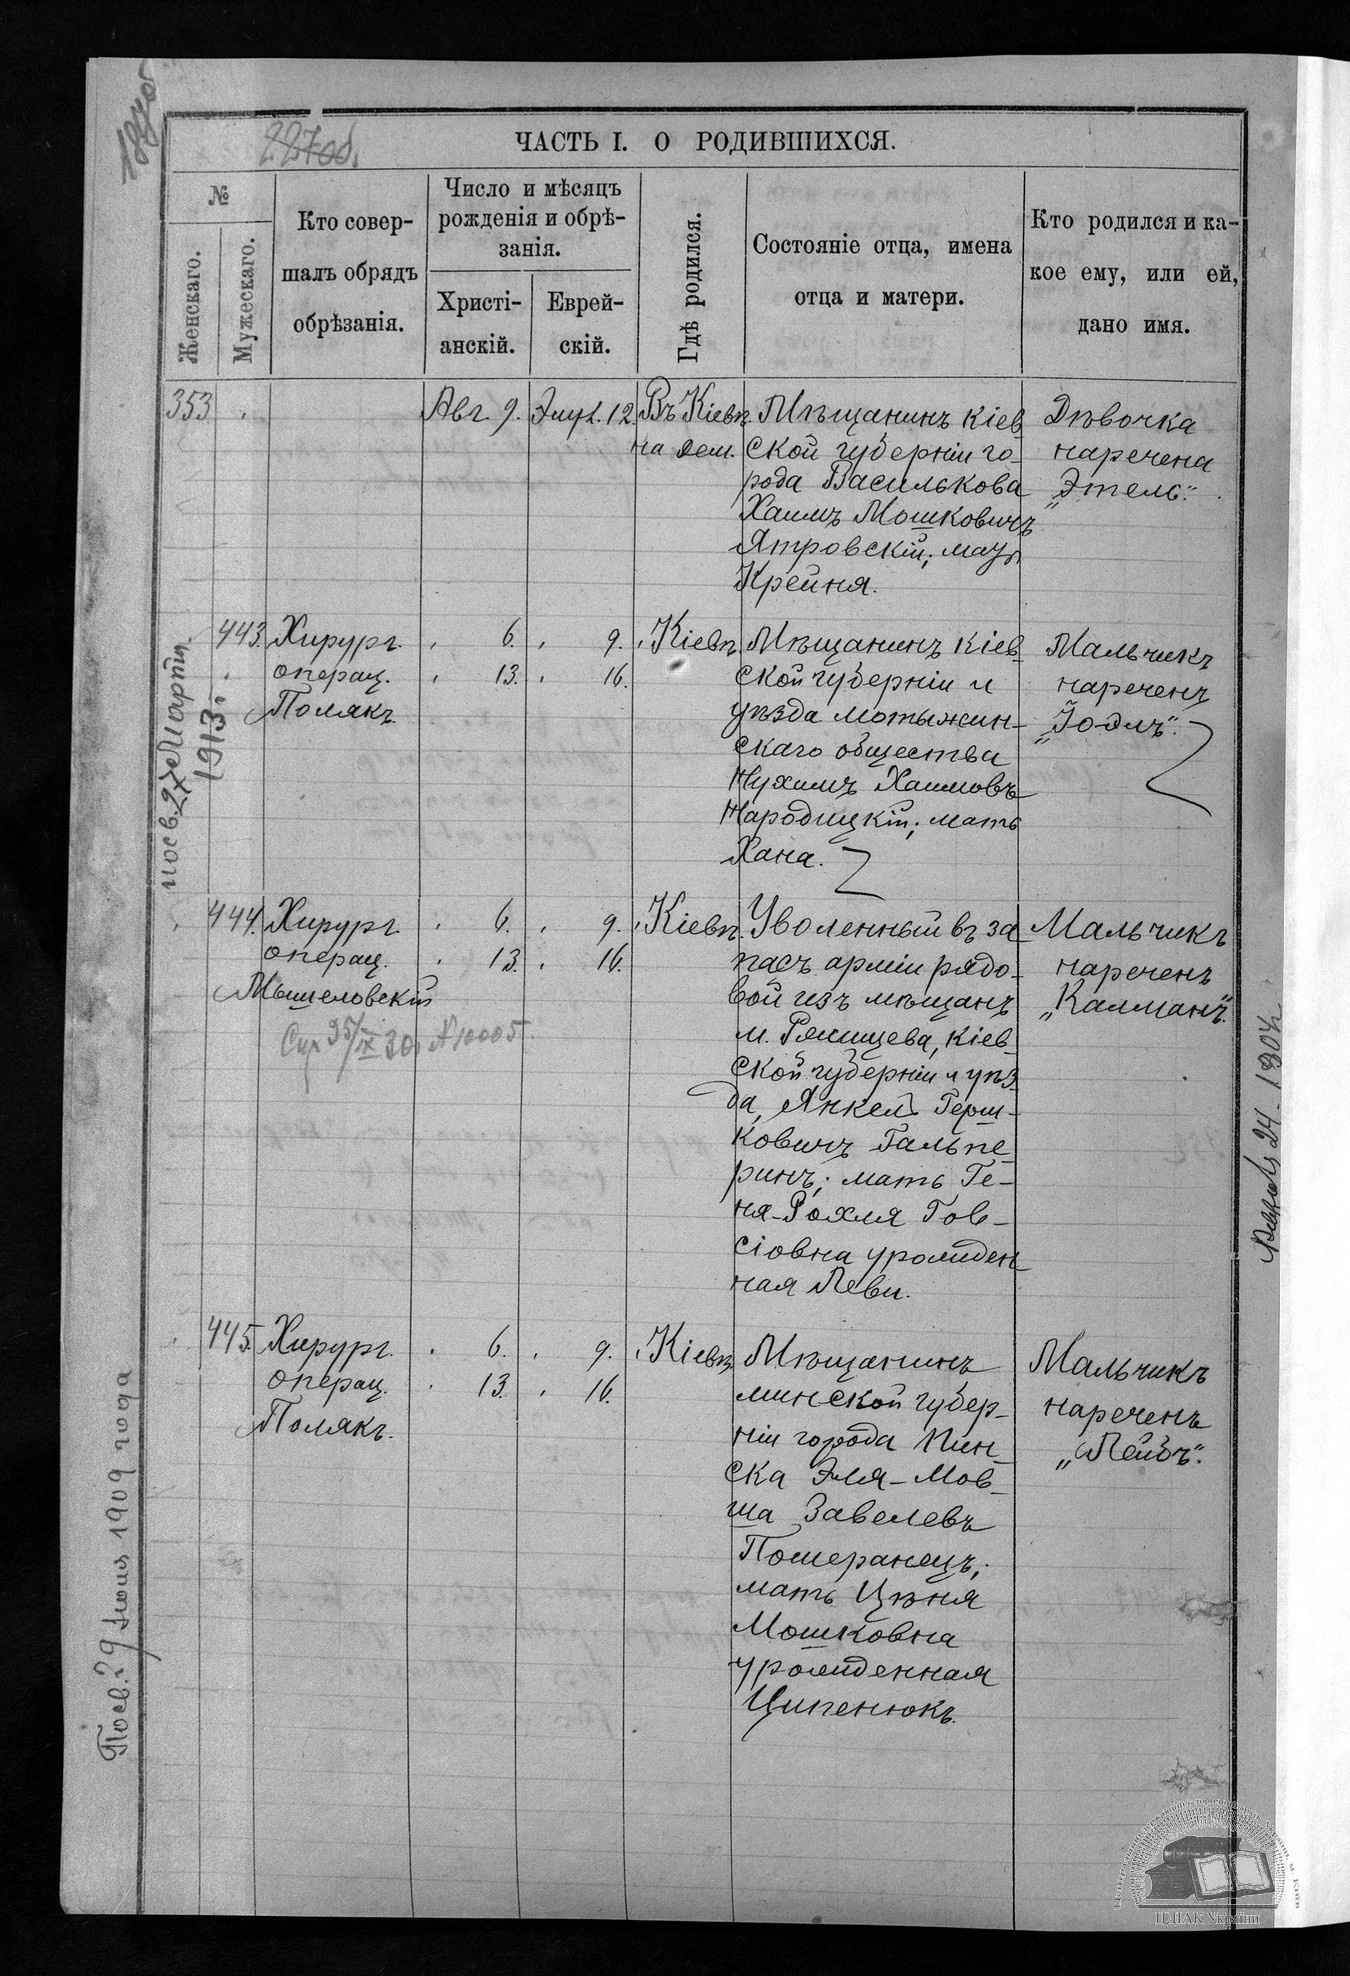 227об.
ЧАСТЬ I. О РОДИВШИХСЯ.
№
Женскаго.
Мужескаго.
Кто совер-
шалъ обрядъ
обрѣзанія.
Число и мѣсяцъ
рожденія и обрѣ-
занія.
Христі-
анскій.
Еврей-
скій.
Гдѣ родился.
Состояніе отца, имена
отца и матери.
Кто родился и ка-
кое ему, или ей,
дано имя.
353
Авг. 9.
Элул. 12.
Въ Кіевѣ
на дем.
Мѣщанинъ кіев-
ской губерніи го-
рода Василькова
Хаимъ Мошковичъ
Ятровскій; мать
Крейня.
Дѣвочка
наречена
„Этель".
443.
Хирург.
операц.
Полякъ
6.
13.
9.
16.
Кіевѣ.
Мѣщанинъ кіев-
ской губерніи и
уѣзда мотыжин-
скаго общества
Нухимъ Хаимовъ
Народицкій; мать
Хана.
Мальчикъ
нареченъ
„Іоэлъ".
444.
Хирург.
операц.
Мышеловскій
6.
13.
9.
16.
Кіевѣ.
Уволенный въ за-
пасъ арміи рядо-
вой изъ мѣщанъ
м. Ржищева, кіев-
ской губерніи и уѣз-
да, Янкель Герш-
ковичъ Гальпе-
ринъ; мать Ге-
ня-Рохля Гов-
сіовна урожден-
ная Леви.
Мальчикъ
нареченъ
„Калманъ".
445.
Хирург.
операц.
Полякъ.
6.
13.
9.
16.
Кіевѣ.
Мѣщанинъ
минской губер-
ніи города Пин-
ска Эля-Мов-
ша Завелевъ
Померанецъ;
мать Цѣня
Мошковна
урожденная
Ципенюкъ.
Мальчикъ
нареченъ
„Лейбъ".
посв. 27го Марта.
1913 г.
Посв. 29 Июля 1909 года
24. 1904
ЦДІАК України